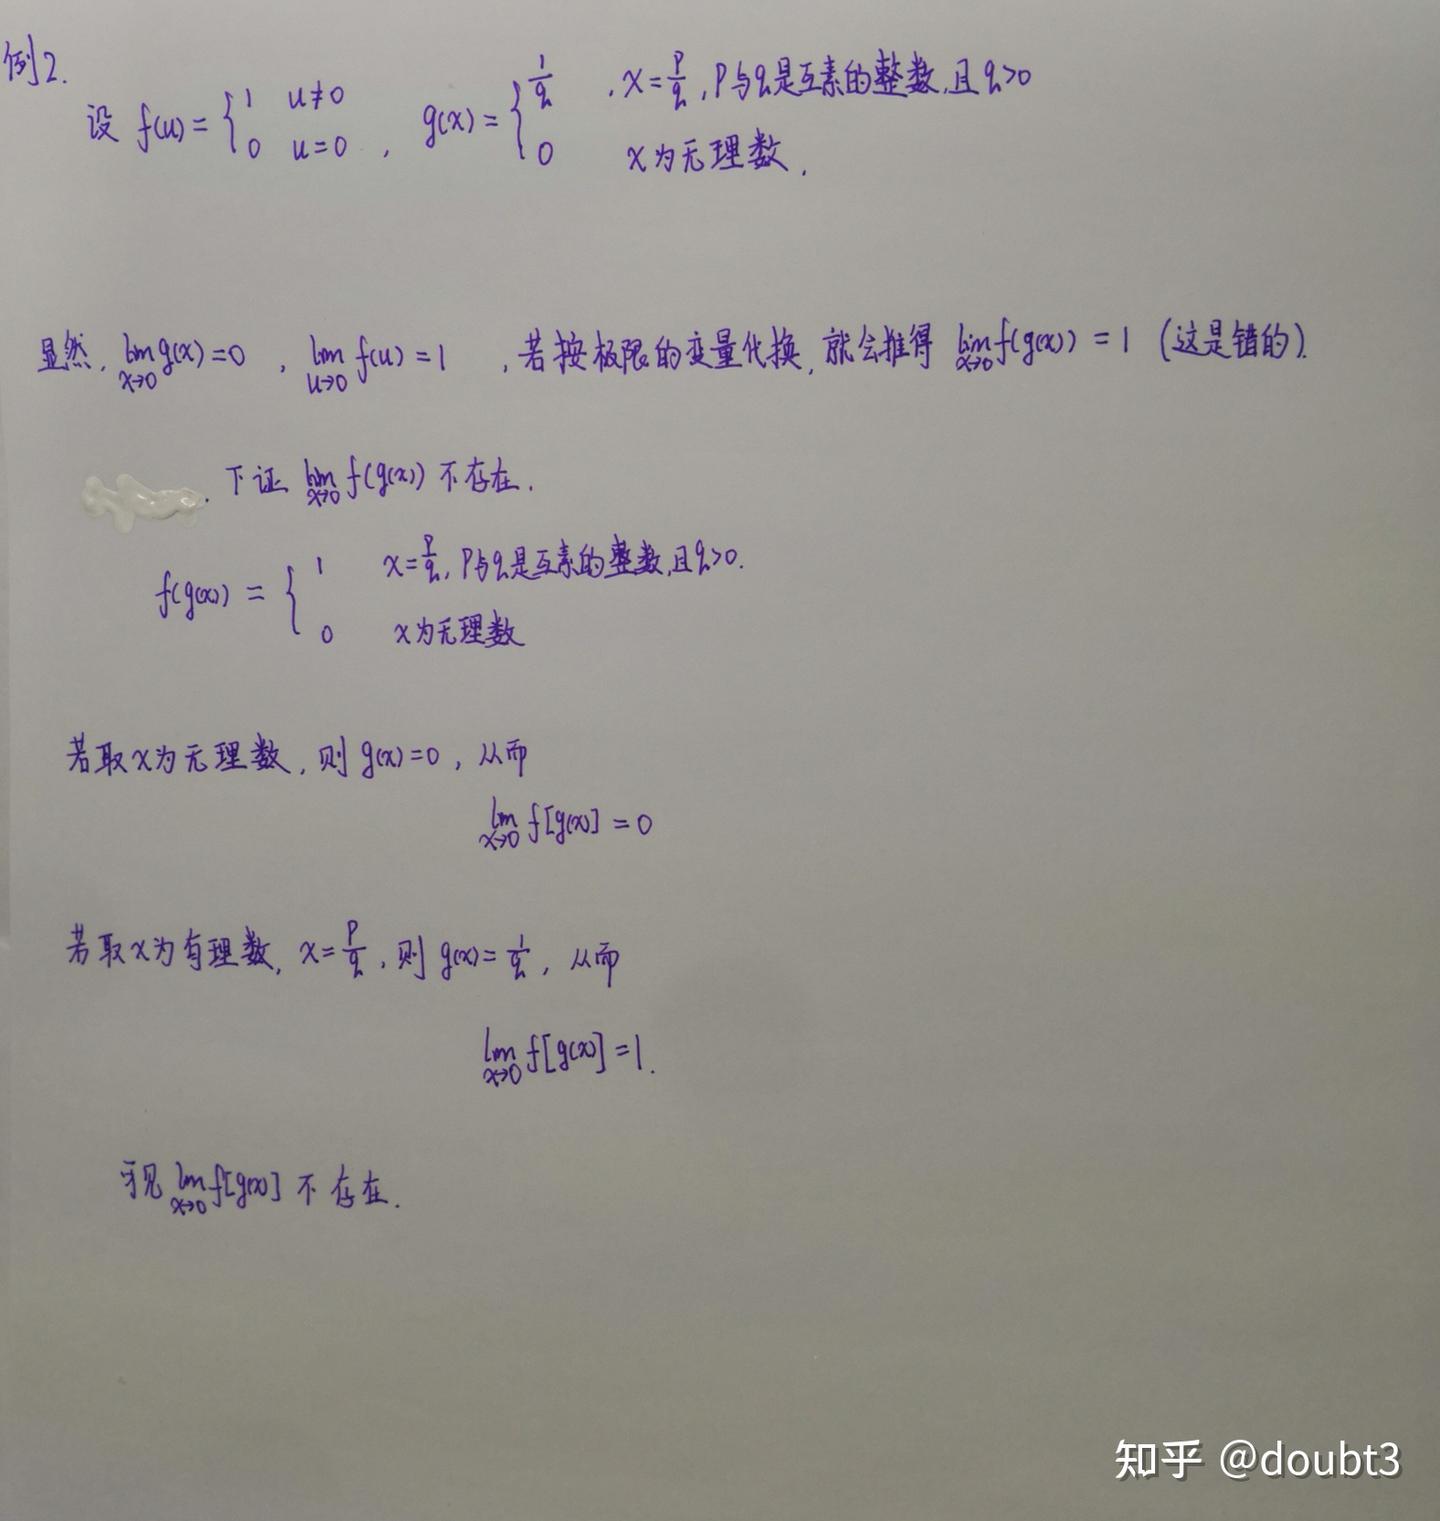 例2.
设 f(u) = { 1 u≠0 , g(x) = { 1/q , x = p/q , p与q是互素的整数,且q>0
0 u=0 0 x为无理数.
显然, lim x→0 g(x) = 0 , lim u→0 f(u) = 1 , 若按极限的变量代换, 就会推得 lim x→0 f(g(x)) = 1 (这是错的).
下证 lim x→0 f(g(x)) 不存在.
f(g(x)) = { 1 x = p/q , p与q是互素的整数,且q>0.
0 x为无理数
若取x为无理数, 则 g(x)=0 , 从而
lim x→0 f[g(x)] = 0
若取x为有理数, x = p/q , 则 g(x) = 1/q , 从而
lim x→0 f[g(x)] = 1.
可见 lim x→0 f[g(x)] 不存在.
知乎 @doubt3